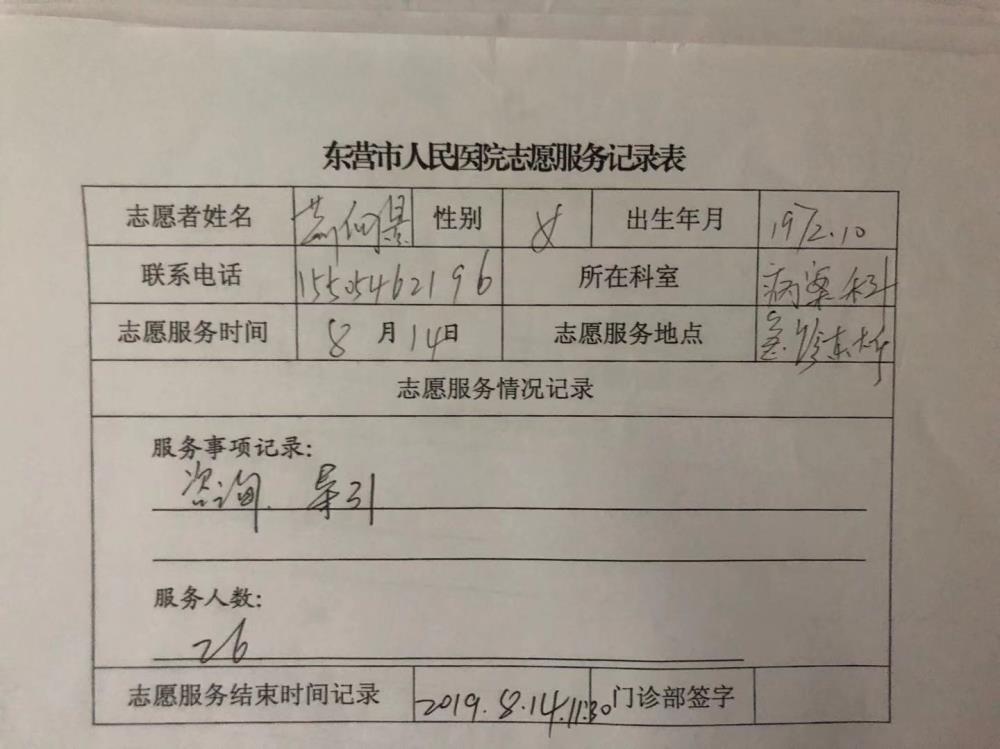 东营市人民医院志愿服务记录表
志愿者姓名 性别 女 出生年月 1972.10
联系电话 15505462196 所在科室 病案科
志愿服务时间 8月14日 志愿服务地点
志愿服务情况记录
服务事项记录:
咨询. 导引
服务人数:
26
志愿服务结束时间记录 2019.8.14.11:30 门诊部签字